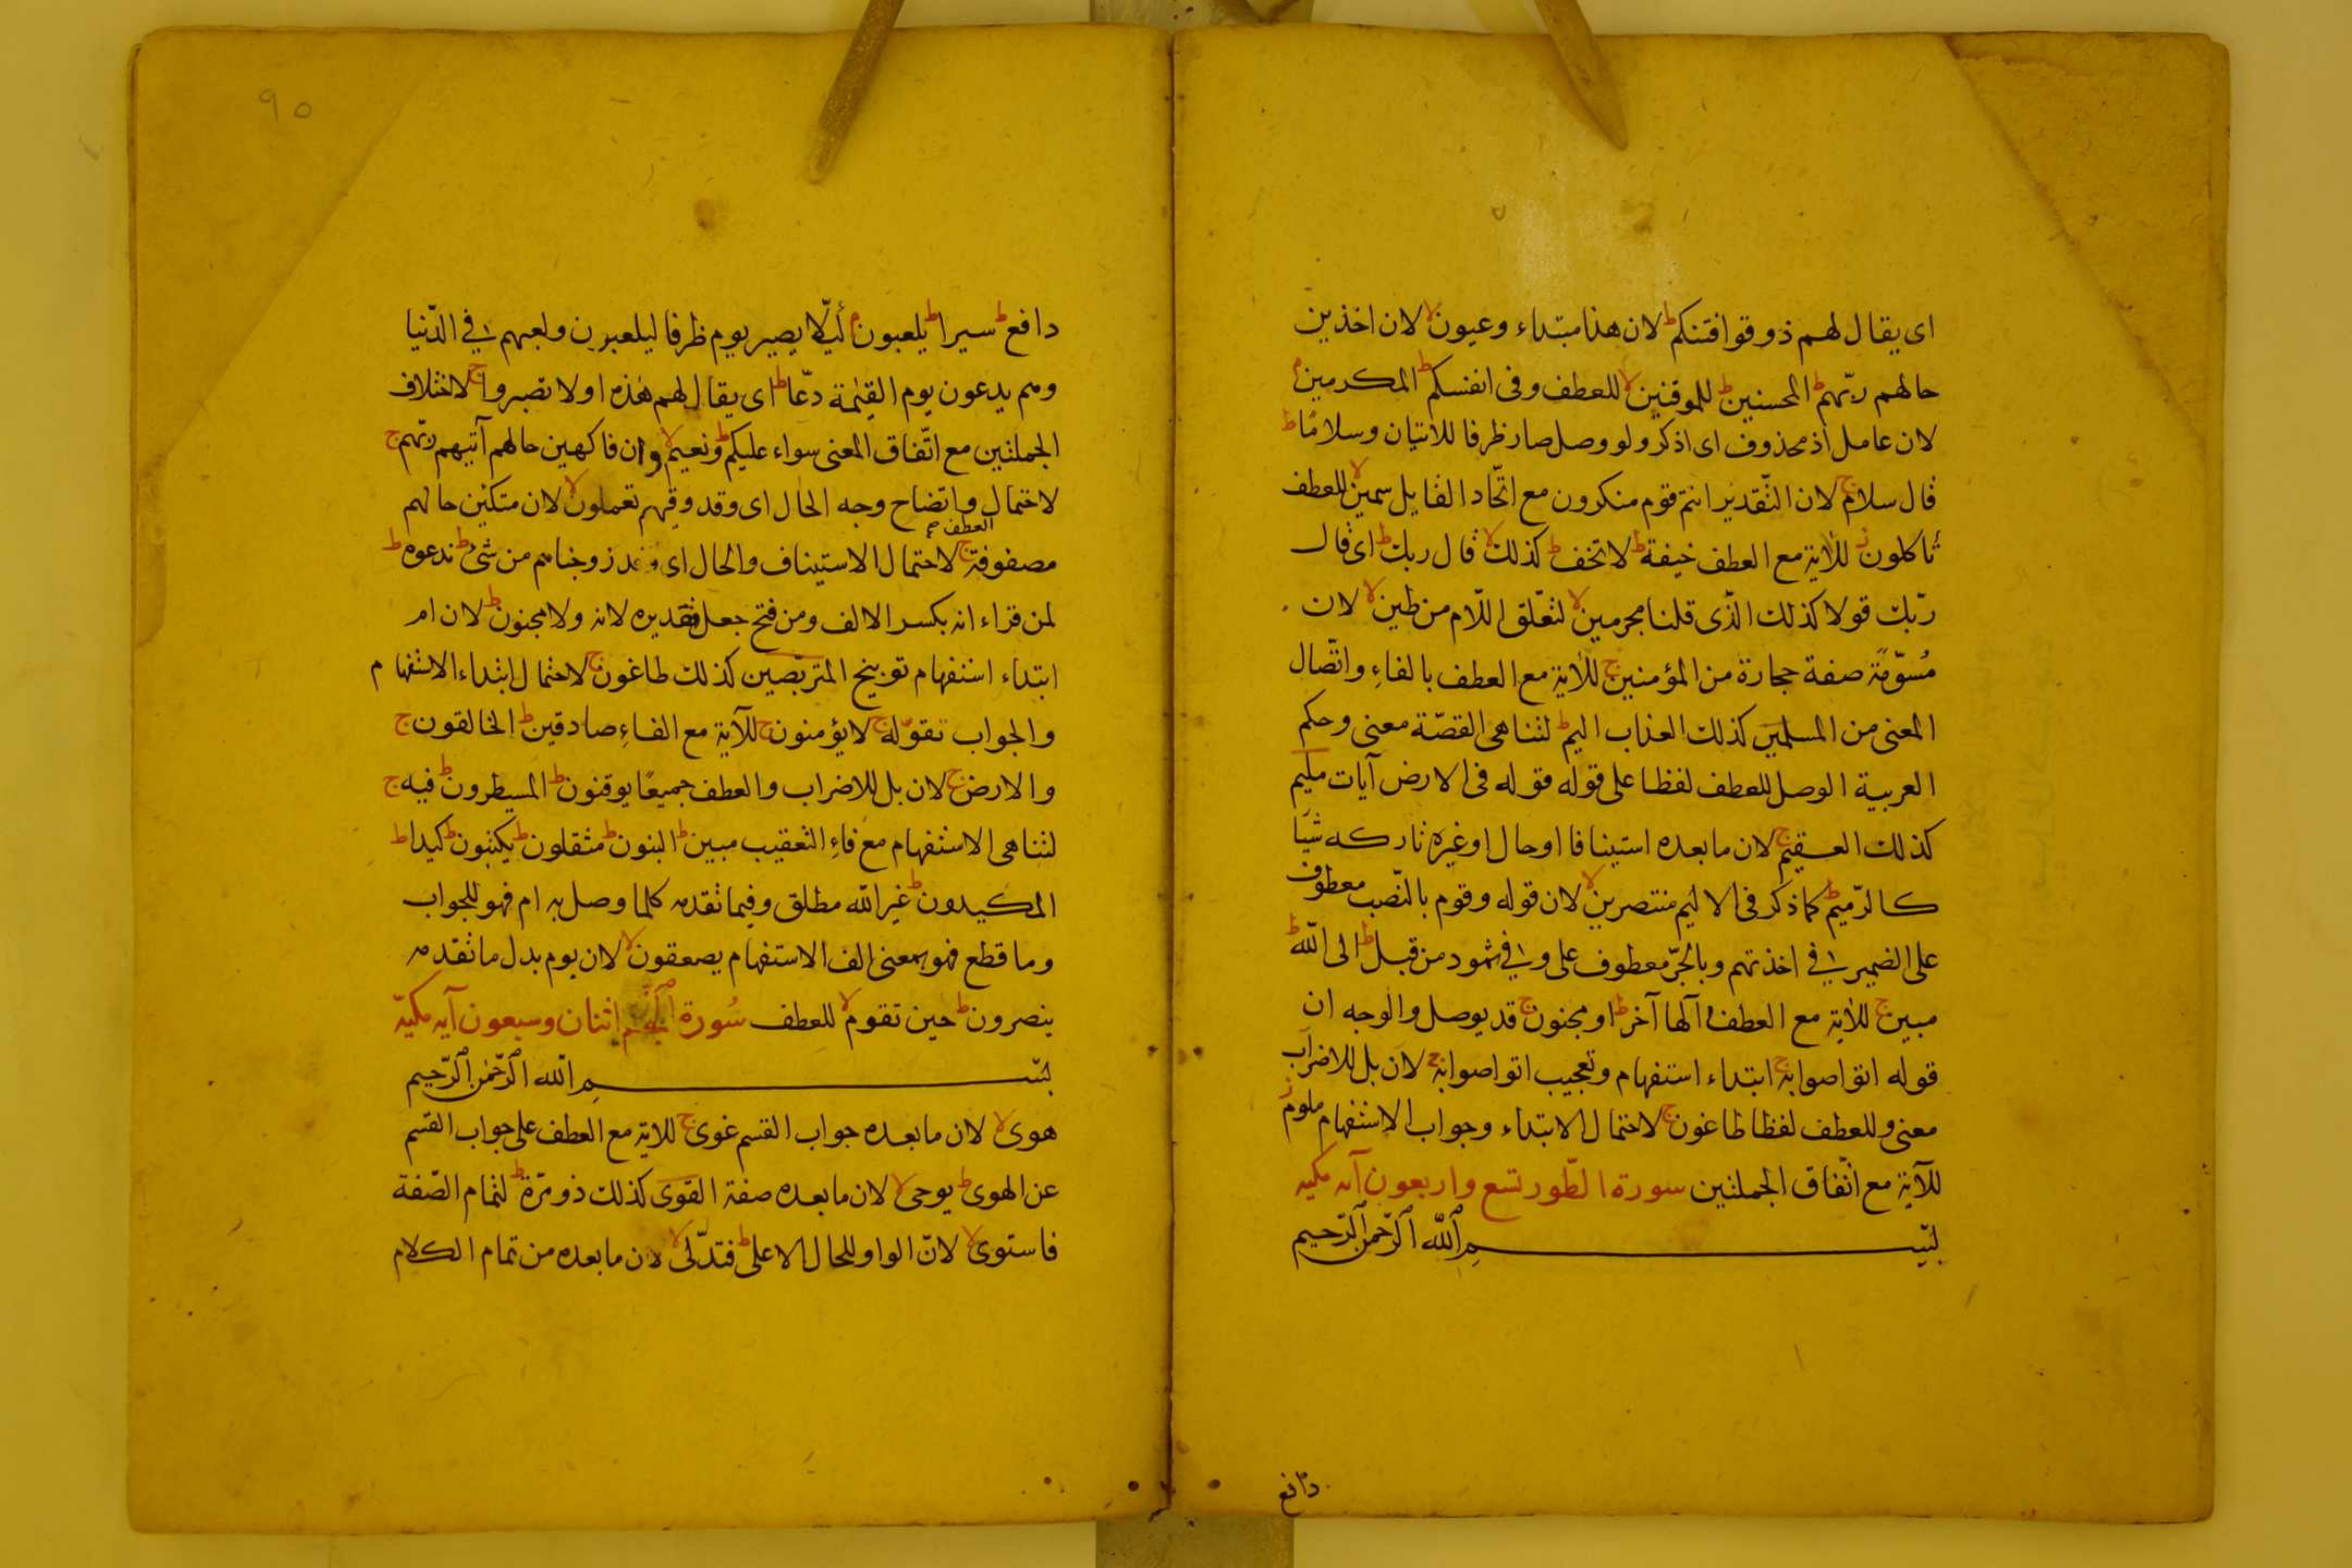 اى يقال لهم ذوقوا فتنتكم ط لان هذا مبتداء وعيون لا لان اخذين
حالهم ربّهم ط المحسنين ط للموقنين لا للعطف وفى انفسكم ط المكرمين م
لان عامل اذ محذوف اى اذكر ولو وصل صار ظرفا للاتيان وسلامًا ط
قال سلام ج لان التّقدير انتم قوم منكرون مع اتّحاد القايل سمين لا للعطف
تأكلون ز للاٰية مع العطف خيفة ط لا تخف ط كذلك لا قال ربك ط اى قال
ربّك قولا كذلك الّذى قلنا مجرمين لا لتعّلق اللّام من طين لا لان
مُسوّمَة صفة حجارة من المؤمنين ج للاٰية مع العطف بالفاءِ واتّصال
المعنى من المسلمين كذلك العذاب اليم ط لتناهى القصّة معنى وحكم
العربية الوصل للعطف لفظا على قوله قوله فى الارض آيات مليم
كذلك العقيم ج لان ما بعده استينافا او حال اوغيره تاركه شيًا
كالرّميم ط كما ذكر فى الاليم منتصرين لا لان قوله وقوم بالنّصب معطوف
على الضمير فى اخذتهم وبالجرّ معطوف على وفى ثمود من قبل ط الى اللّه ط
مبين ج للاٰية مع العطف آلها آخر ط او مجنون ج قد يوصل والوجه ان
قوله اتواصوا به ج ابتداء استفهام وتعجيب اتواصوا به ج لان بل للاضراب
معنى وللعطف لفظا طاغون ج لاحتمال الابتداء وجواب الاستفهام ملوم ز
للآية مع اتّفاق الجملتين سورة الطّور تسع واربعون آيه مكيه
بسم اللّه الرّحمن الرّحيم
دافع
٩٠
دافع ط سيرا ط يلعبون م لئلّا يصير يوم ظرفا ليلعبون ولعبهم فى الدّنيا
وهم يدعون يوم القيٰمة دعّا ط اى يقال لهم هذه او لا تصبروا ج لاختلاف
الجملتين مع اتّفاق المعنى سواء عليكم ط ونعيم لا وان فاكهين حالهم آتيهم ربّهم ج
لاحتمال واتضاح وجه الحال اى وقد وقيهم تعملون لا لان متكئين حالهم
العطف صح
مصفوفة ج لاحتمال الاستيناف والحال اى وقد زوجناهم من شئ ط ندعوه ط
لمن قراء انه بكسر الالف ومن فتح جعل تقديره لانه ولا مجنون ط لان ام
ابتداء استفهام توبيخ المتربّصين كذلك طاغون ج لاحتمال ابتداء الاستفهام
والجواب تقوّله ج لا يؤمنون ج للآية مع الفاءِ صادقين ط الخالقون ج
والارض ج لان بل للاضراب والعطف جميعًا يوقنون ط المسيطرون ط فيه ج
لتناهى الاستفهام مع فاءِ التعقيب مبين ط البنون ط مثقلون ط يكتبون ط كيدا ط
المكيدون ط غير اللّه مطلق وفيما تقدمه كلما وصل به ام فهو للجواب
وما قطع فهو بمعنى الف الاستفهام يصعقون لا لان يوم بدل ما تقدمه
ينصرون ط حين تقوم لا للعطف سُورة النّجم اثنان وسبعون آيه مكيّة
بسم اللّه الرّحمٰن الرّحيم
هوى لا لان ما بعده جواب القسم غوى ج للاية مع العطف على جواب القسم
عن الهوى ط يوحى لا لان ما بعده صفة القوى كذلك ذو مرّة ط لتمام الصّفة
فاستوى لا لانّ الواو للحال الاعلى ط فتدلّى لا لان ما بعده من تمام الكلام